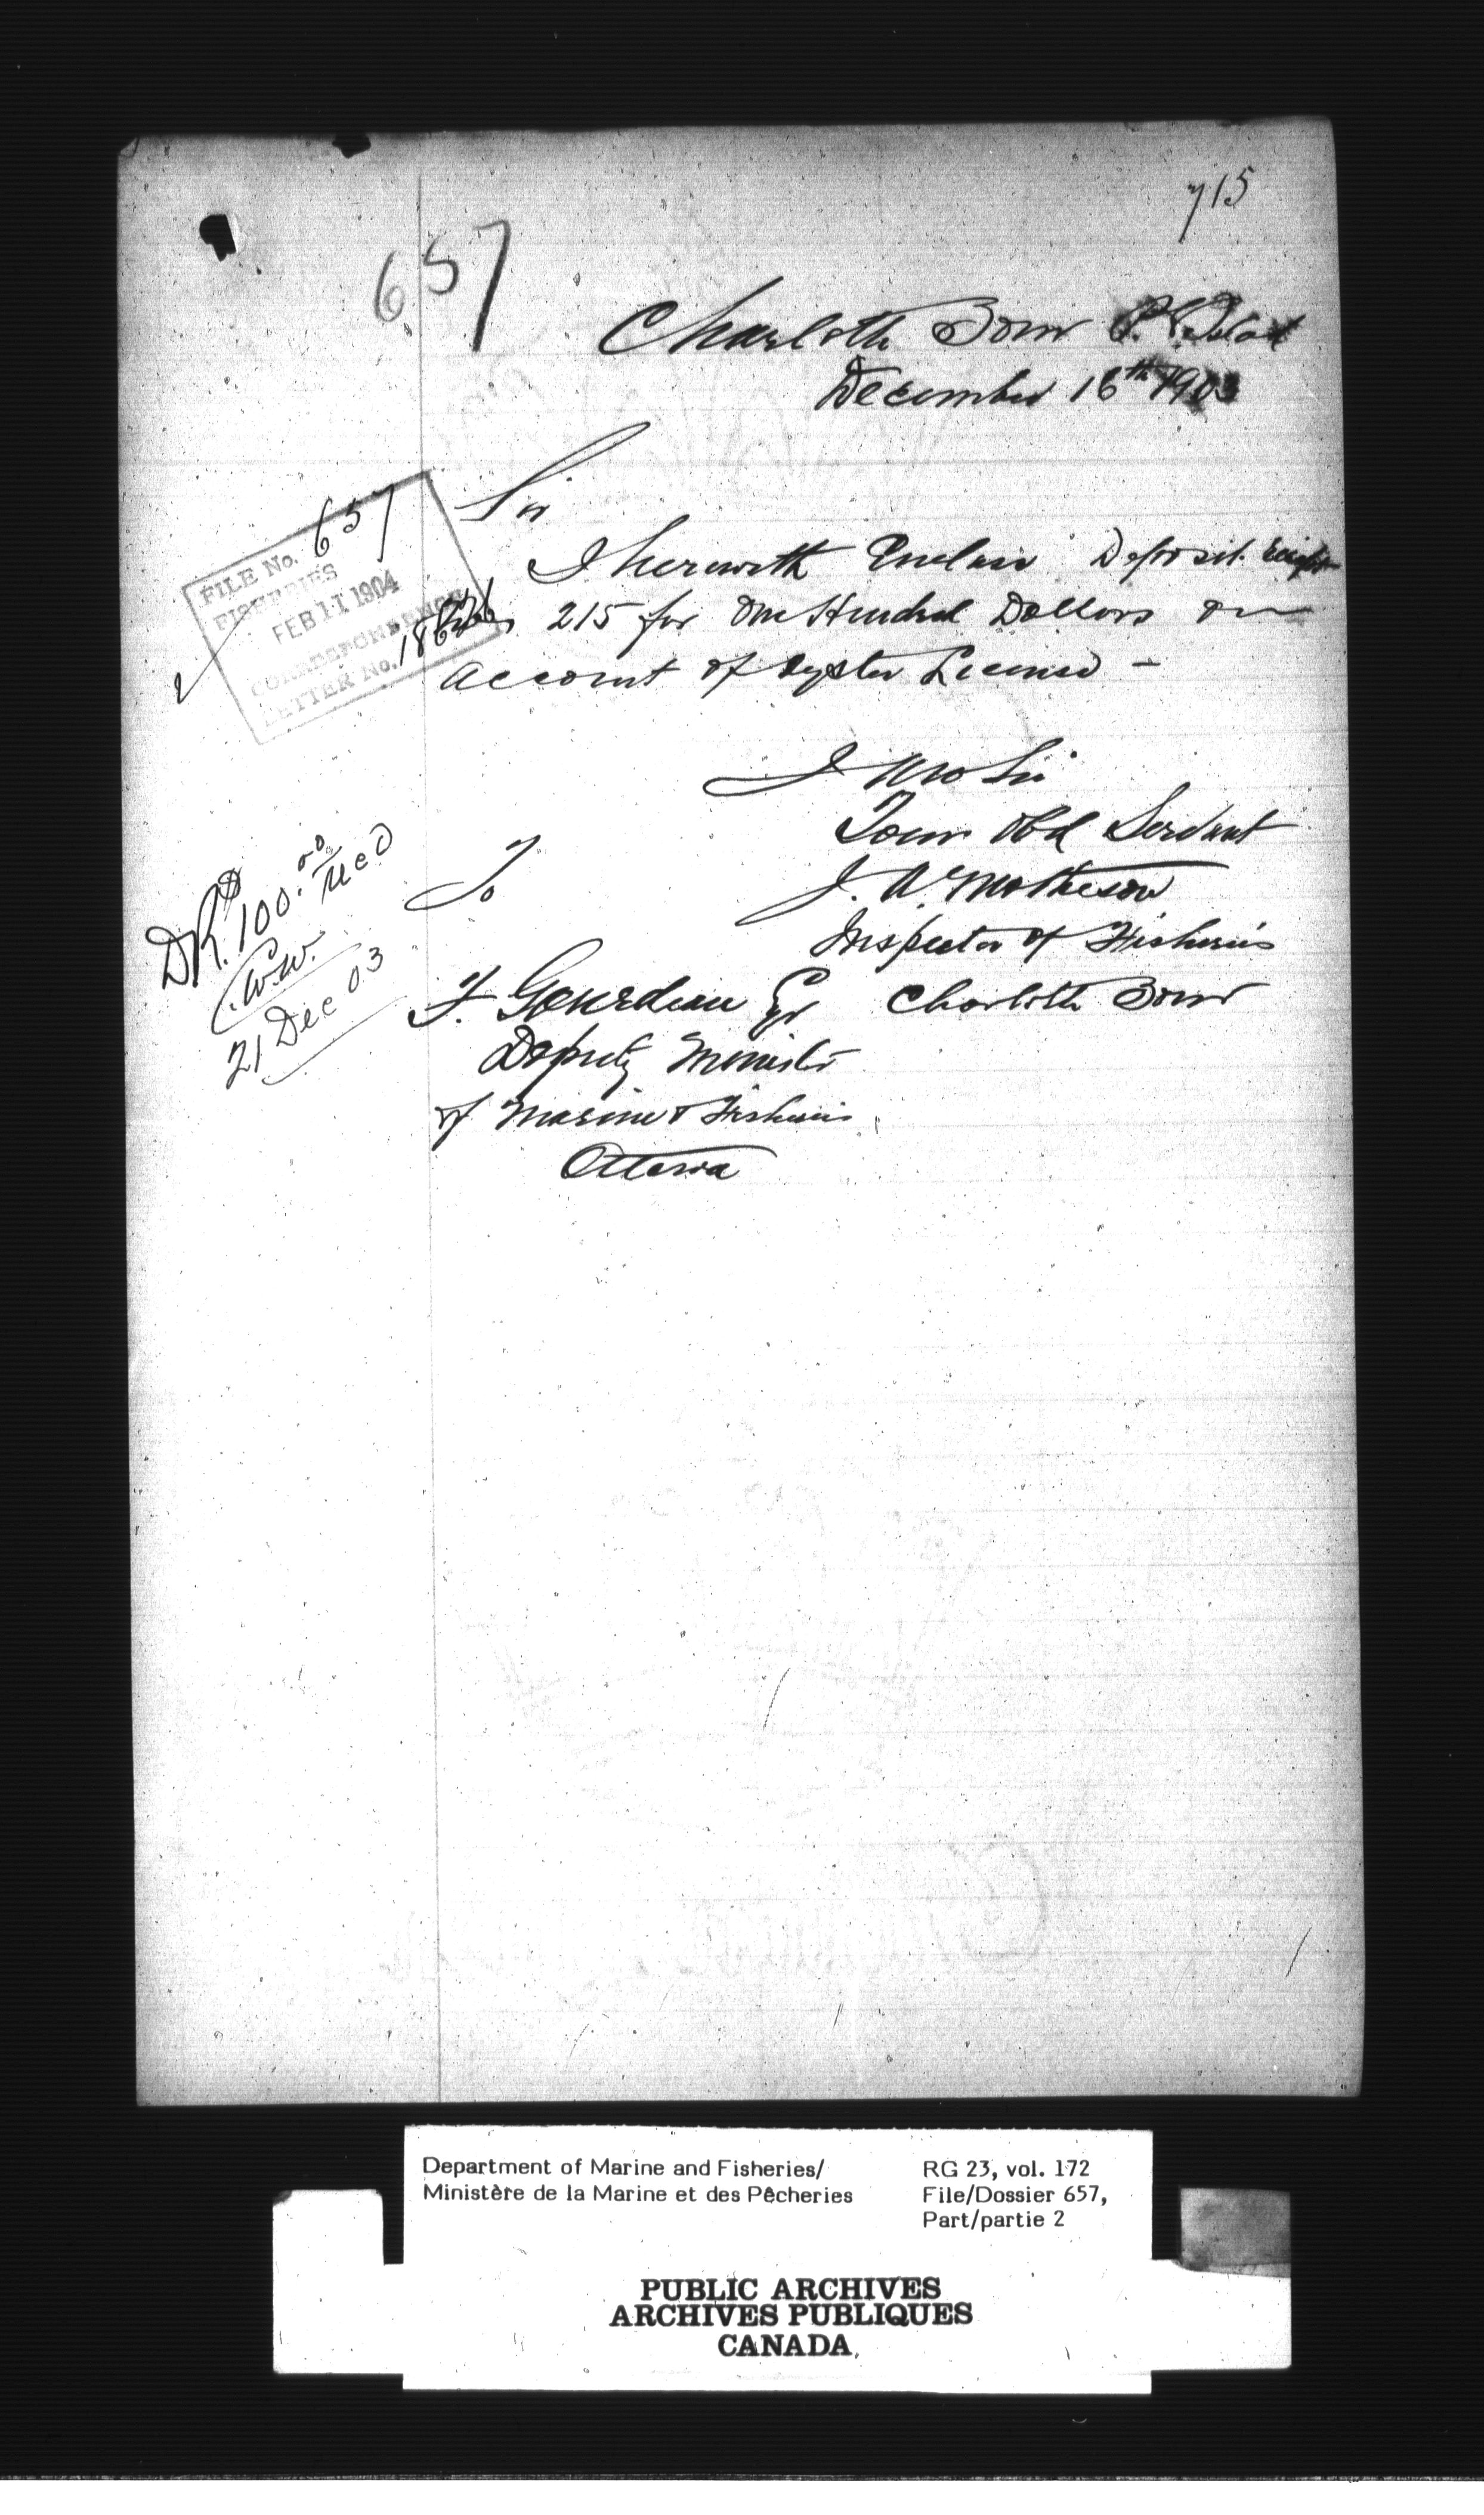 715
657
Charlotte Town P. E. Island
December 16th 1903
Sir
I herewith Enclose Deposit Receipt
215 for One Hundred Dollars on
account of Oyster License —
FILE No. 657
FISHERIES
FEB 11 1904
CORRESPONDENCE
LETTER No.
I am Sir
Your Obd Servant
J. A. Matheson
Inspector of Fisheries
Charlotte Town
To
F. Gourdeau Esqr
Deputy Minister
of Marine & Fisheries
Ottawa
DR. $100.00
21 Dec 03
Department of Marine and Fisheries/
Ministère de la Marine et des Pêcheries
RG 23, vol. 172
File/Dossier 657,
Part/partie 2
PUBLIC ARCHIVES
ARCHIVES PUBLIQUES
CANADA